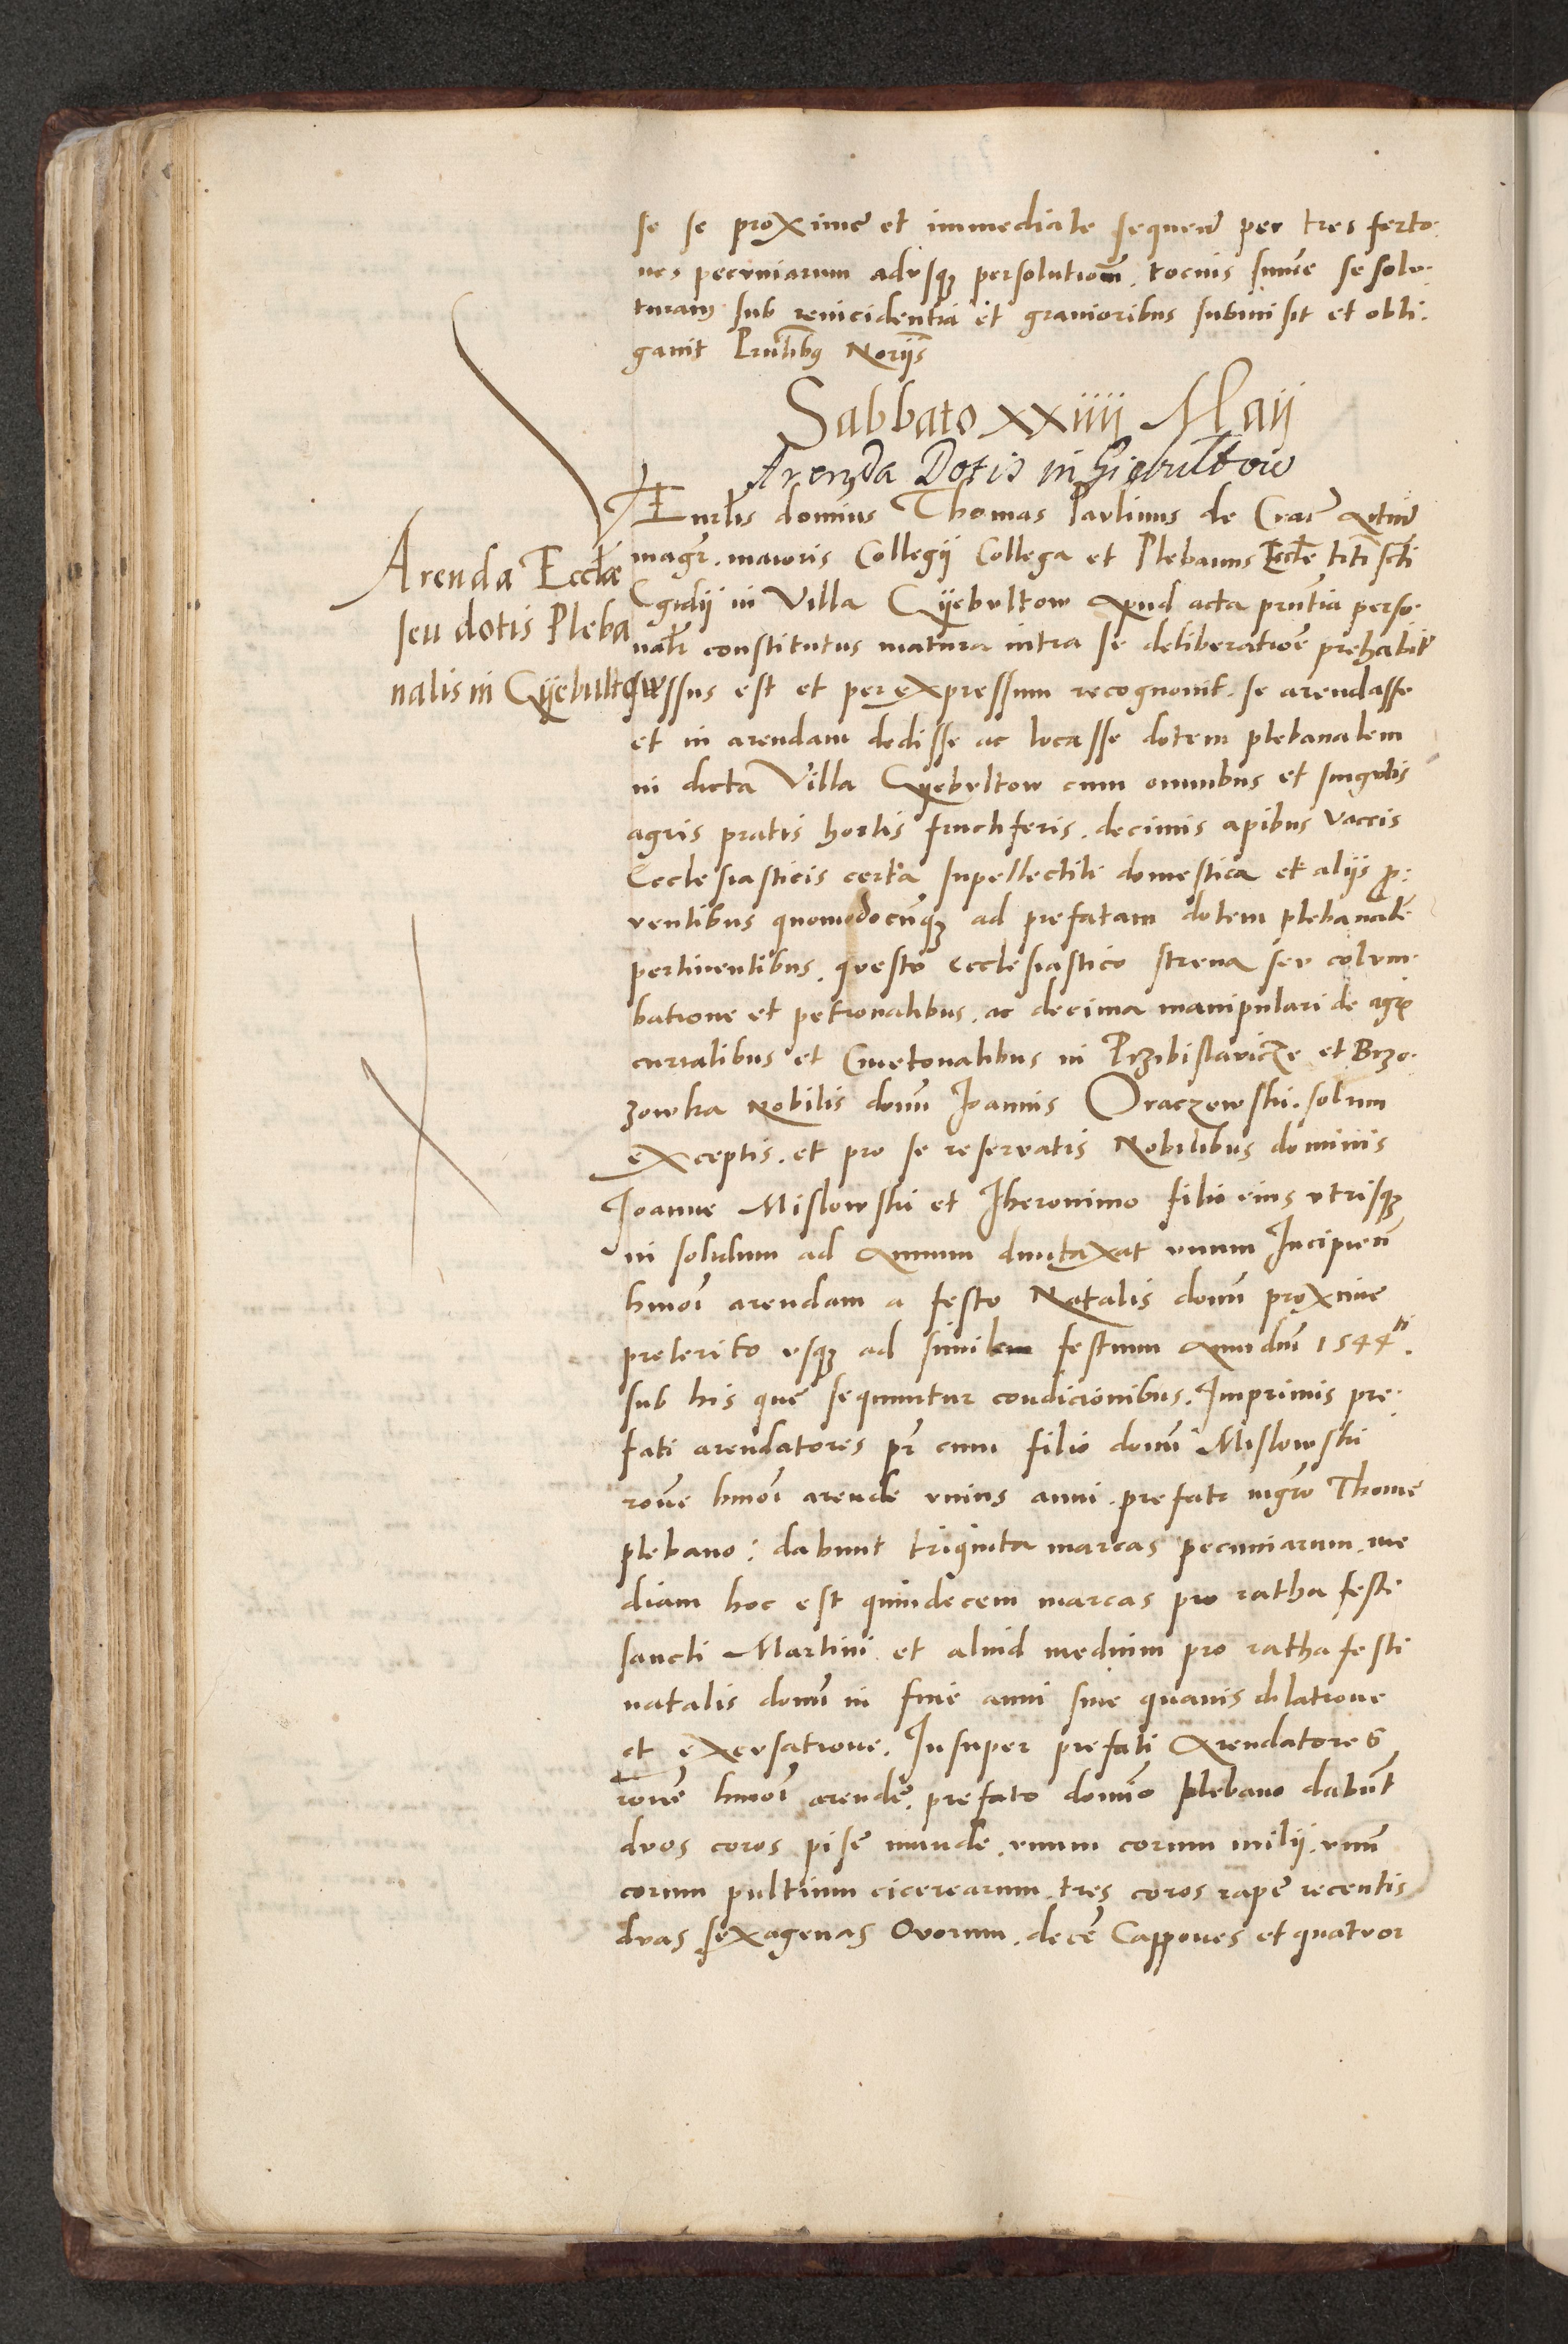 se se proxime et immediate sequeñ per tres ferto-
nes pecuniarum adusqꝫ persolutionem tocius summe se solu-
turam sub reincidentia et gravioribus submisit et obli-
gavit Prntibus Noriis
Sabbato XXIIII Maij
Arenda Dotis in Giebultow
Arenda Eccłæ
seu dotis Pleba
nalis in Gÿebultow
Enrłis dominus Thomas Paulinus de Crac Artiū
magr. maioris Collegij Collega et Plebanus Eccłe titi scti
Egidij in Villa Gÿebultow apud acta prntia perso-
nałr constitutus matura intra se deliberatioē prehabit
fessus est et per expressum recognovit se arendasse
et in arendam dedisse ac locasse dotem plebanalem
in dicta Villa Gÿebultow cum omnibus et singulis
agris pratis hortis fructiferis. decimis apibus vaccis
Ecclesiasticis certa supellectili domestica et alijs pro-
ventibus quomodocūqꝫ ad prefatam dotem plebanalē
pertinentibus. questo ecclesiastico strena seu colum-
batione et petronalibus. ac decima manipulari de agris
curialibus et Cmetonalibus in Przibislavicze et Brzo-
zowka Nobilis domī Joannis Oraczewski. solum
exceptis. et pro se reservatis Nobilibus dominis
Joanne Mislowski et Iheronimo filio eius utrisqꝫ
in solidum ad Annum duntaxat unum Incipieñ
hmoī arendam a festo Natalis domī proxime
preterito usqꝫ ad similem festum Anni dnī 1544ti.
sub his que sequuntur condicionibus. Imprimis pre-
fati arendatores pr cum filio domī Mislowski
rone hmoī arende unius anni. prefato mgro Thome
plebano: dabunt triginta marcas pecuniarum. me
diam hoc est quindecem marcas pro ratha festi
sancti Martini et aliud medium pro ratha festi
natalis domī in fine anni sine quavis dilatione
et excusatione. Insuper prefati Arendatores
rone hmoī arende. prefato domīo plebano dabūt
duos coros pise munde. unum corum milij. unū
corum pultium cicerearum tres coros rape recentis
duas sexagenas Ovorum. decē Cappones et quatuor